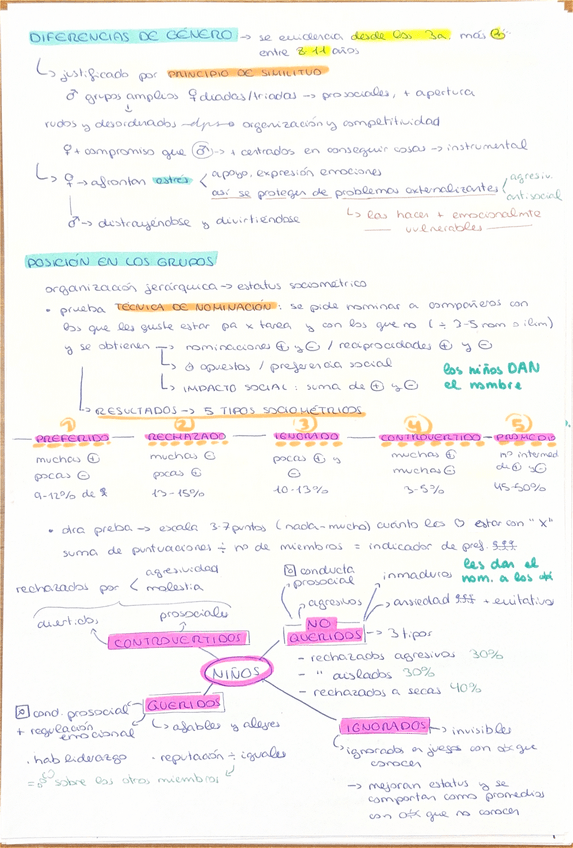 DIFERENCIAS DE GÉNERO → se evidencia desde los 3a, más
entre 8-11 años
↳ justificado por PRINCIPIO DE SIMILITUD
♂ grupos amplios ♀ diadas/triadas → prosociales, + apertura
rudos y desordenados → organización y competitividad
♀ + compromiso que ♂ → + centrados en conseguir cosas → instrumental
↳ ♀ → afrontan estrés < apoyo, expresión emociones
así se protegen de problemas externalizantes < agresiv.
antisocial
♂ → distrayéndose y divirtiéndose
↳ las hacen + emocionalmte
vulnerables
POSICIÓN EN LOS GRUPOS
organización jerárquica → estatus sociométrico
• prueba TÉCNICA DE NOMINACIÓN: se pide nominar a compañeros con
los que les guste estar pa x tarea y con los que no (÷ 3-5 nom o ilim)
y se obtienen → nominaciones ⊕ y ⊖ / reciprocidades ⊕ y ⊖
↳ opuestos / preferencia social
↳ IMPACTO SOCIAL: suma de ⊕ y ⊖
los niños DAN
el nombre
↳ RESULTADOS → 5 TIPOS SOCIOMÉTRICOS
1 2 3 4 5
PREFERIDO RECHAZADO IGNORADO CONTROVERTIDO PROMEDIO
muchas ⊕ muchas ⊖ pocas ⊕ y ⊖ muchas ⊕ nº intermed
pocas ⊖ pocas ⊕ muchas ⊖ de ⊕ y ⊖
9-12% de 12-15% 10-13% 3-5% 45-50%
• otra prueba → escala 3-7 puntos (nada-mucho) cuánto les ♡ estar con "X"
suma de puntuaciones ÷ nº de miembros = indicador de pref.
les dan el
nom. a los
rechazados por < agresividad
molestia
divertidos
prosociales
CONTROVERTIDOS
conducta
prosocial
agresivos
inmaduros
ansiedad + evitativo
NO
QUERIDOS → 3 tipos
- rechazados agresivos 30%
- " aislados 30%
- rechazados a secas 40%
NIÑOS
QUERIDOS
cond. prosocial
+ regulación
emocional
↳ afables y alegres
• hab liderazgo • reputación ÷ iguales
sobre los otros miembros
IGNORADOS → invisibles
↳ ignorados a juegos con que
conocer
→ mejoran estatus y se
comportan como promedios
con que no conocen